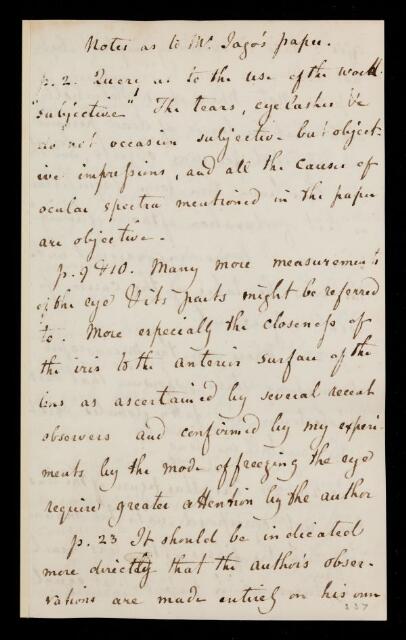 Notes as to Mr. Jago's paper.
p. 2. Quere as to the use of the word
"subjective" The tears, eyelashes &c
do not occasion subjective but object-
ive impressions, and all the causes of
ocular spectra mentioned in the paper
are objective -
p. 9 & 10. Many more measurements
of the eye & its parts might be referred
to. More especially the closeness of
the iris to the anterior surface of the
lens as ascertained by several recent
observers and confirmed by my experi-
ments by the mode of freezing the eye
requires greater attention by the author
p. 23 It should be indicated
more directly that the author's obser-
vations are made entirely on his own
237